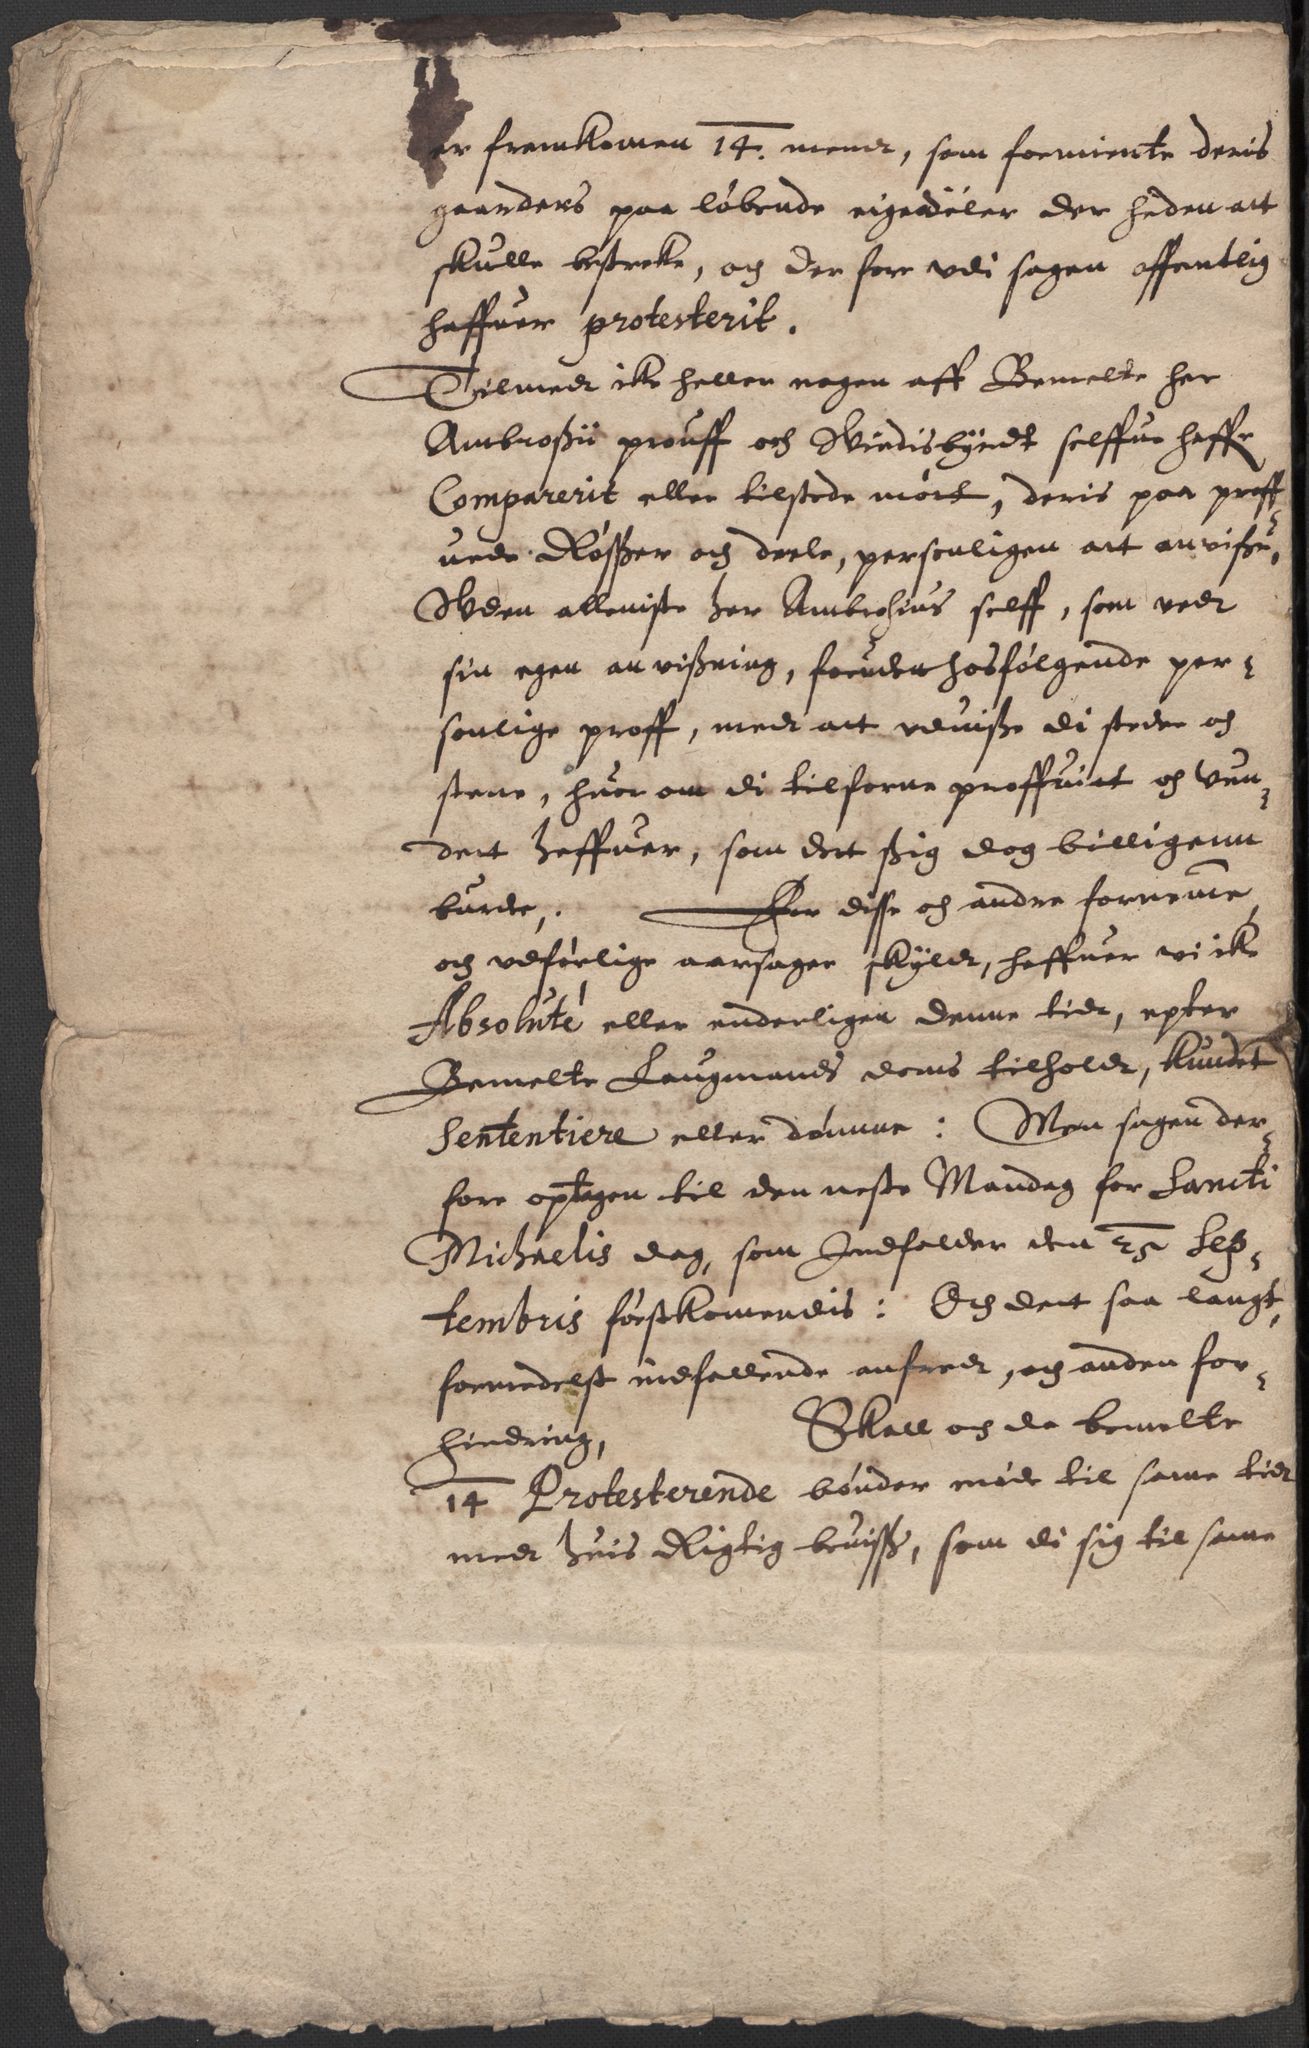 er fremkomen 14. mend, som formiente deris
gaarders paa løbende eigedeler der heden att
skulle bestrekke, och der fore vdi sagen offentlig
haffuer protesterit.
Tilmed ike heller nogen aff Bemelte her
Ambrosii prouff och Vindisbyrdt selffue haffr
Comparerit eller tilstede mødt, deris paa proff¬
uede Røsser och deele, personligen att anvisse,
Vden alleniste her Ambrosius self, som ved
sin egen anvissning, foruden hosfølgende per¬
sonlige proff, med att vduisse di steder och
stene, huor om di tilforne proffuitt och vun¬
dett heffuer, som dett sig dog billigenn
burde,. For disse och andre forneme
och vdførlige aarsager skyld, haffuer vi ike
Absolutè eller enderligen denne tid, epter
Bemelte Laugmands doms tilhold, kundet
Sententiere eller dømme: Men sagen der¬
fore optagen til den neste Mandag for Sancti
Michaelis dag, som Indfalder den 25 Sep¬
tembris førstkomendis: Och dett saa langt,
formedelst indfallende anfred, och anden for¬
hindring, Skall och da bemelte
14 Protesterende bønder møde til same tid
med huis Rigtig beuiss, som di sig til same